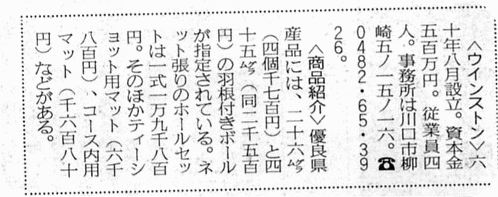 〈ウインストン〉六
十年八月設立。資本金
五百万円。従業員四
人。事務所は川口市柳
崎五ノ一五ノ一六。☎
0482・65・39
26。
〈商品紹介〉優良県
産品には、二十六㌘
(四個千七百円)と四
十五㌘(同二千五百
円)の羽根付きボール
が指定されている。ネ
ット張りのホールセッ
トは一式一万九千八百
円。そのほかティーシ
ョット用マット(六千
八百円)、コース内用
マット(千六百八十
円)などがある。